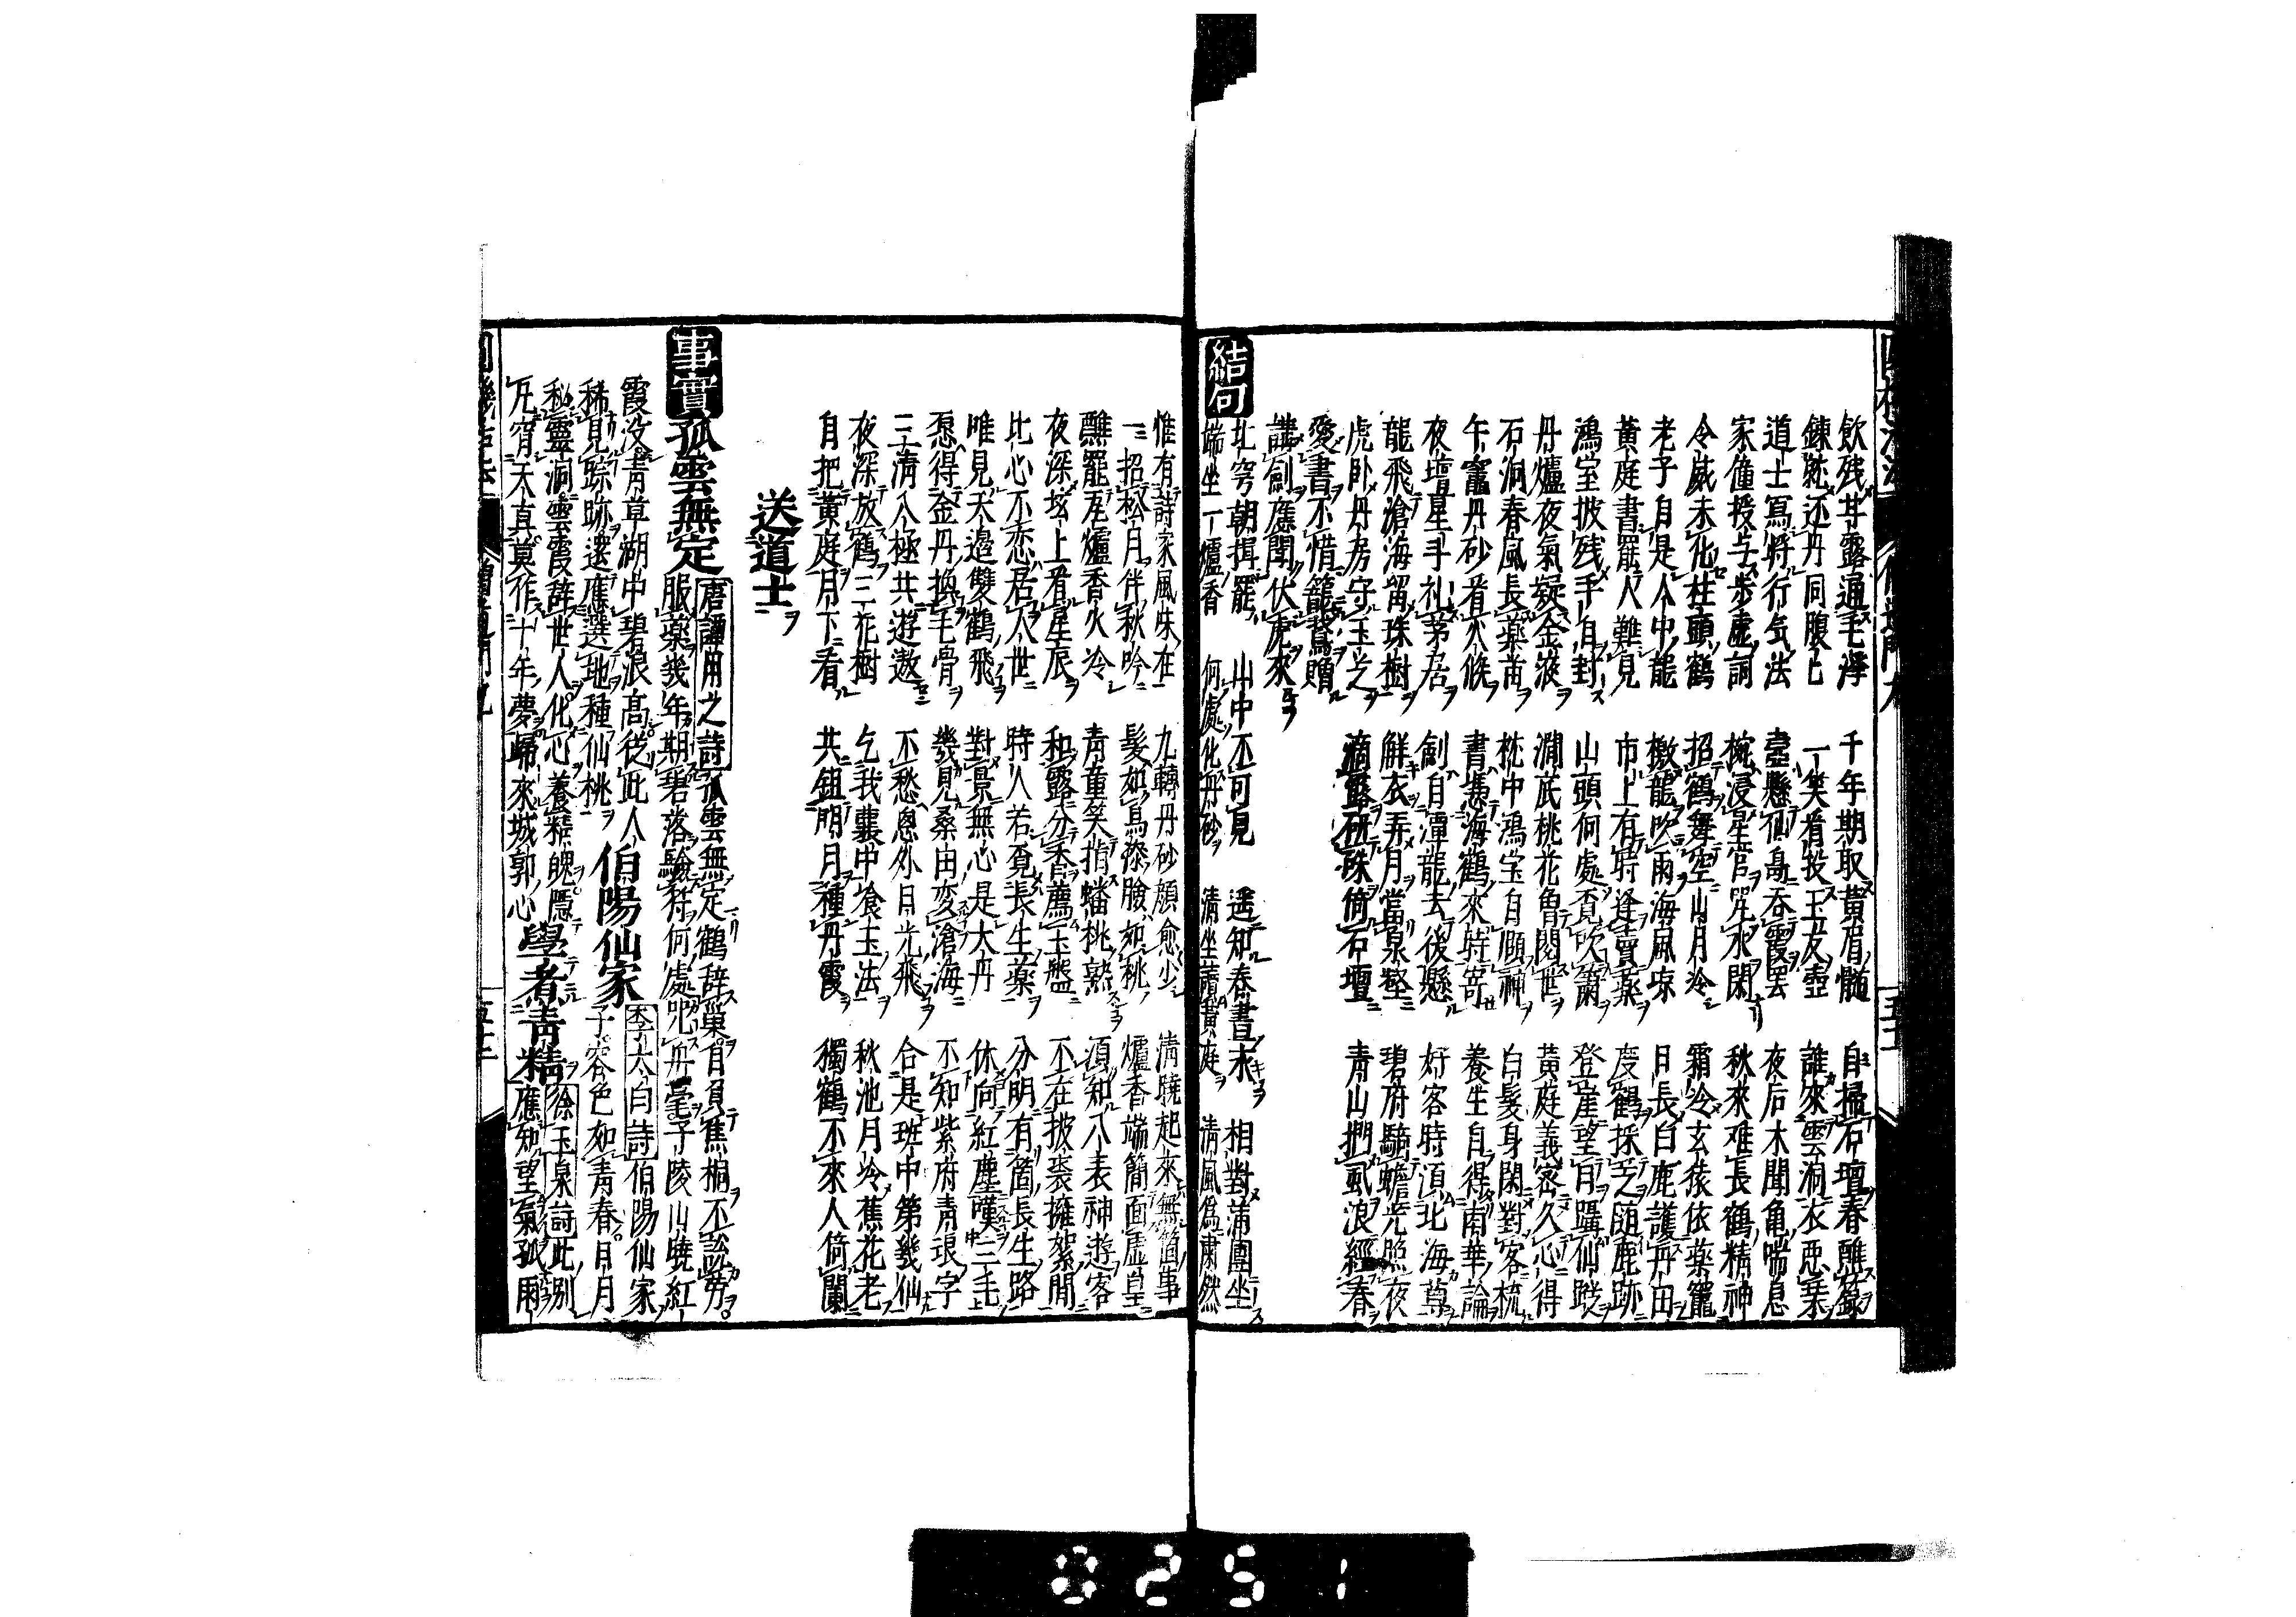 飲残甘露通毛澤 千年期取黄眉髄 自掃石壇春醮籙
錬就还丹同腹匕 一笑看投玉友壺 誰來雲洞衣惡葉
道士寫將行气法 壺懸仙島吞霞罢 夜后木聞亀喘息
家僮授与步虚詞 椀浸星宮咒水閑 秋來难長鶴精神
令威未化柱頭鶴 招鶴舞空山月冷 霜冷玄猿依薬籠
老子自是人中龍 檄龍吹雨海風凉 日長白鹿護丹田
黄庭書罷人難見 市上有時逢賣薬 庋鶴採芝随鹿跡
鴻宝披残手自封 山頭何處覓吹簫 登崖望月躡仙蹤
丹爐夜氣凝金液 澗底桃花魯閱世 黄庭義密久心得
石洞春風長薬苗 枕中鴻宝自頤神 白髪身閑對客梳
午竈丹砂看火候 書憑海鶴來時寄 養生自得南華論
夜壇星斗礼茅居 劍自潭龍去後懸 好客時湏北海尊
龍飛滄海留珠樹 鮮衣弄月當泉壑 碧府騎蟾光照夜
虎卧丹房守玉芝 滴露研硃倚石壇 青山捫虱浪經春
愛書不惜籠鵞贈
講劍應聞伏虎來
結句 北窓朝揖罷 山中不可見 遥知春晝永 相對蒲團坐
端坐一爐香 何處化丹砂 清坐蕭黄庭 清風為肅然
惟有詩家風味在 九轉丹砂顔愈少 清曉起來無箇事
一招松月伴秋吟 髮如烏漆臉如桃 爐香端簡面虚皇
醮罷石爐香火冷 青童笑指蟠桃熟 湏知八表神遊客
夜深坛上看星辰 和露分香薦玉盤 不在披裘擁絮間
比心不恋居人世 時人若覓長生薬 分明有箇長生路
唯見天邉雙鶴飛 對景無心是大丹 休向紅塵嘆二毛
惡得金丹換毛骨 幾見桑田変滄海 不知紫府青琅字
三清八極共遊遨 不愁息外日光飛 合是班中第幾仙
夜深放鶴三花樹 乞我囊中飡玉法 秋池月冷蕉花老
自把黄庭月下看 共鉏明月種丹霞 獨鶴不來人倚闌
送道士
事實 孤雲無定 唐譚用之詩孤雲無定鶴辞巢自負焦桐不説劳
服薬幾年期碧落驗符何處咒丹毫子陵山曉紅
霞没青草湖中碧浪高從此人 伯陽仙家 李太白詩伯陽仙家
稀見踪跡还應選地種仙桃 子容色如青春日月
秘靈洞雲霞辞世人化心養精魄隱 學者青精 徐玉泉詩此别
凡窅天真莫作十年夢歸來城郭心 應知望氣孤雨